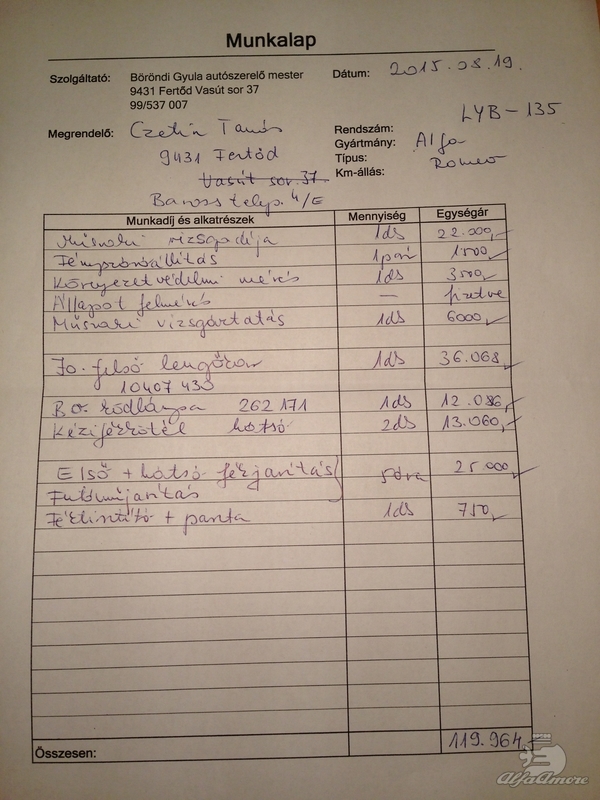 Munkalap
Szolgáltató: Böröndi Gyula autószerelő mester
9431 Fertőd Vasút sor 37
99/537 007
Dátum: 2015.08.19.
Megrendelő: Czetin Tamás
9431 Fertőd
Vasút sor. 37
Baross telep. 4/E
Rendszám: LYB-135
Gyártmány: Alfa
Típus: Romeo
Km-állás:
Munkadíj és alkatrészek Mennyiség Egységár
Műszaki vizsgadíja 1db 22.000,-
Fényszóróállítás 1pár 1500,-
Környezetvédelmi mérés 1db 3500,-
Állapot felmérés — fizetve
Műszaki vizsgáztatás 1db 6000,-
Jo. felső lengőkar 1db 36.068,-
10407430
Bo. ködlámpa 262171 1db 12.086,-
Kézifékkötél hátsó 2db 13.060,-
Első + hátsó fékjavítás 5óra 25.000,-
Futóműjavítás
Féktisztító + pasta 1db 750,-
Összesen: 119.964,-
AlfaAmore